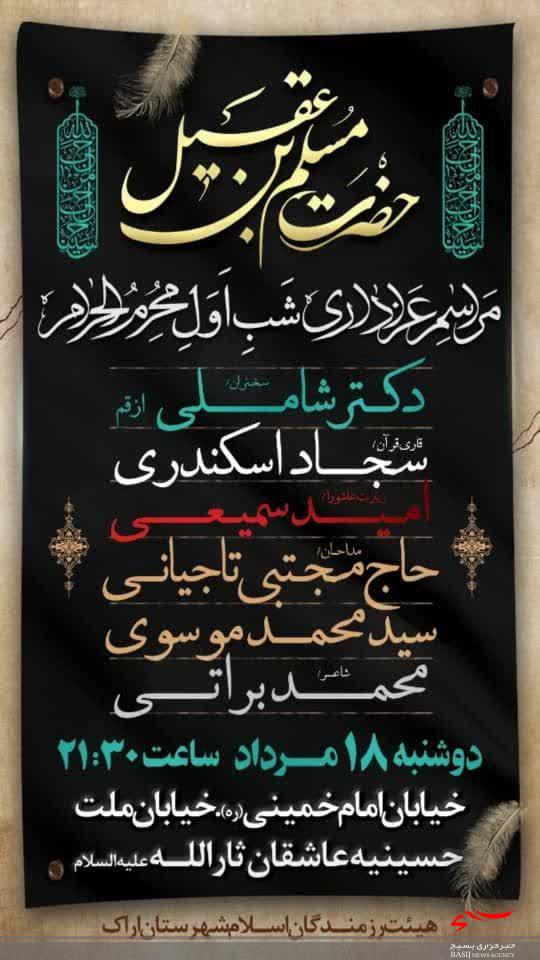 حضرت مسلم بن عقیل
مراسم عزاداری شب اول محرم الحرام
سخنران/
دکتر شاملی از قم
قاری قرآن/
سجاد اسکندری
زیارت عاشورا/
امید سمیعی
مداحان/
حاج مجتبی تاجیانی
سید محمد موسوی
شاعر/
محمد براتی
دوشنبه ۱۸ مرداد ساعت ۲۱:۳۰
خیابان امام خمینی (ره)، خیابان ملت
حسینیه عاشقان ثارالله علیه‌السلام
هیئت رزمندگان اسلام شهرستان اراک
خبرگزاری بسیج
BASIJ NEWS AGENCY